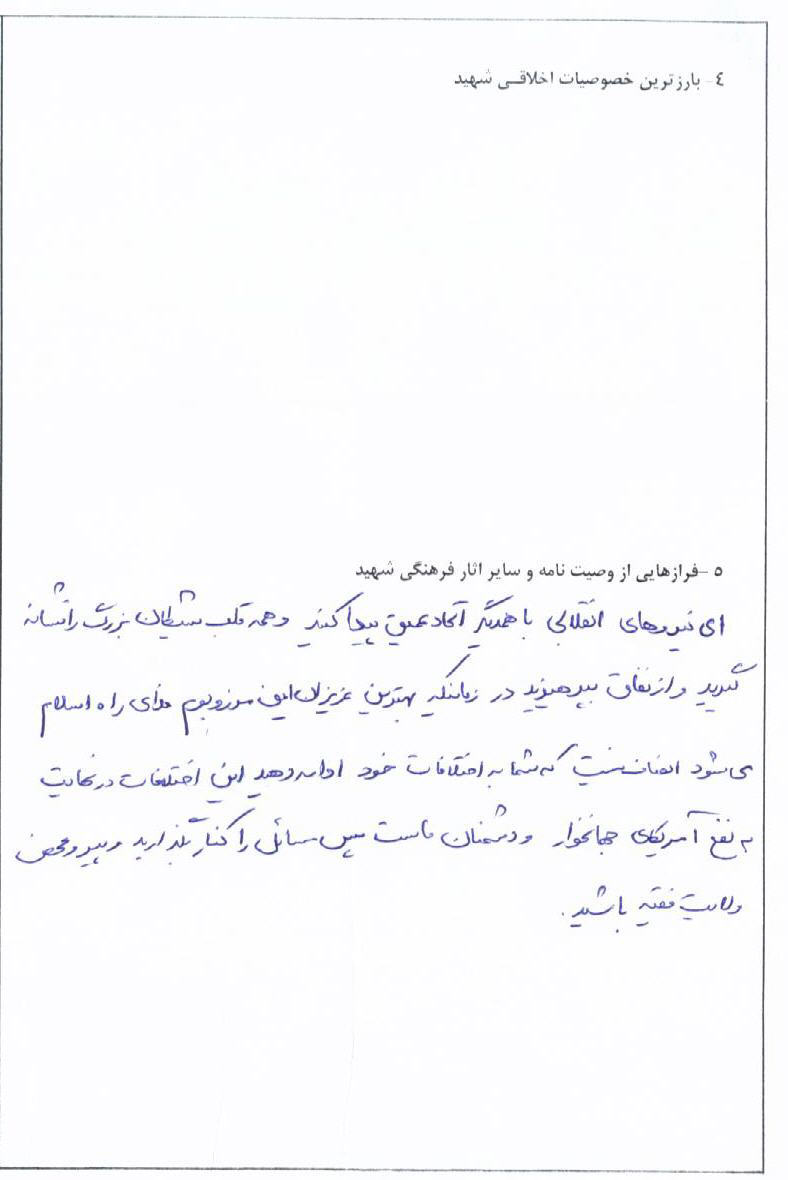 ٤- بارزترین خصوصیات اخلاقی شهید
٥-فرازهایی از وصیت نامه و سایر اثار فرهنگی شهید
ای نیروهای انقلابی با همدیگر اتحاد عمیق پیدا کنید و همه قلب شیطان بزرگ را نشانه
گیرید و از نفاق بپرهیزید در زمانیکه بهترین عزیزان این مرز و بوم فدای راه اسلام
می شود انصاف نیست که شما به اختلافات خود ادامه دهید این اختلافات در نهایت
به نفع آمریکای جهانخوار و دشمنان ماست پس مسائل را کنار بگذارید و پیرو محض
ولایت فقیه باشید.